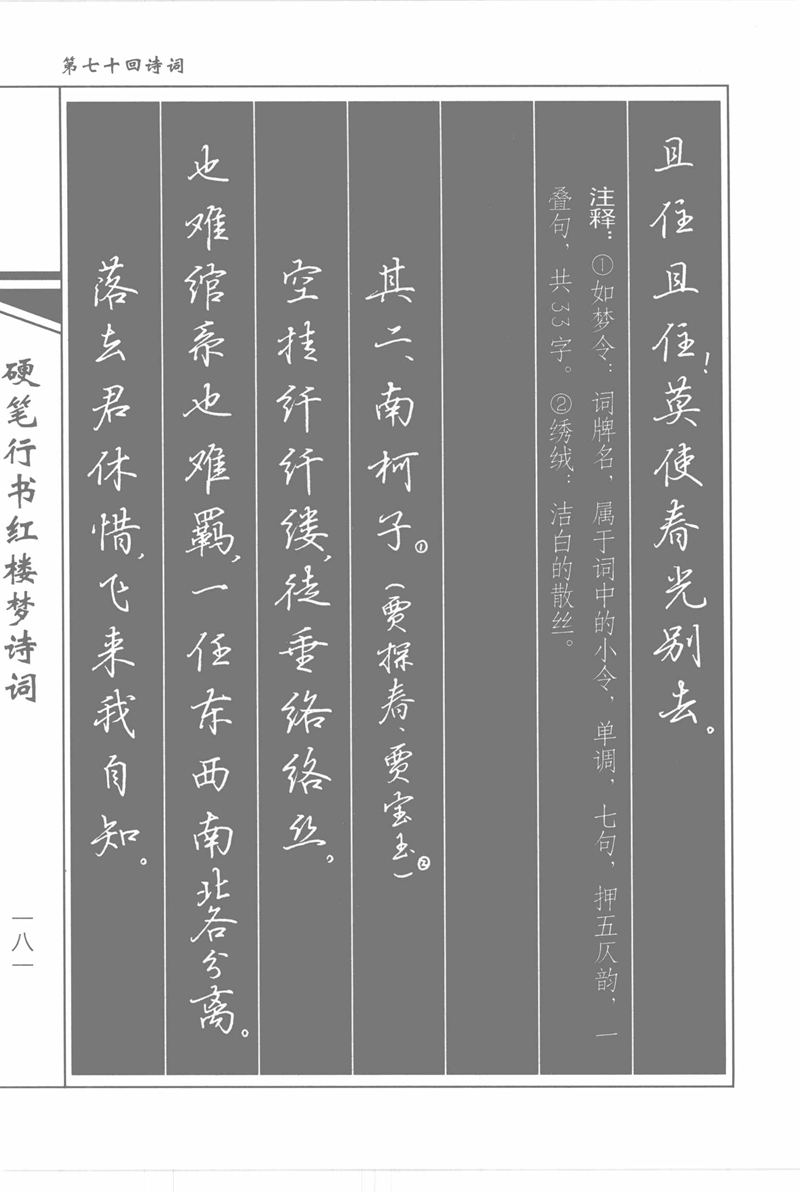 第七十回诗词
且住且住！莫使春光别去。
注释：①如梦令：词牌名，属于词中的小令，单调，七句，押五仄韵，一
叠句，共33字。②绣绒：洁白的散丝。
其二、南柯子①（贾探春、贾宝玉）②
空挂纤纤缕，徒垂络络丝。
也难绾系也难羁，一任东西南北各分离。
落去君休惜，飞来我自知。
硬笔行书红楼梦诗词
一八一